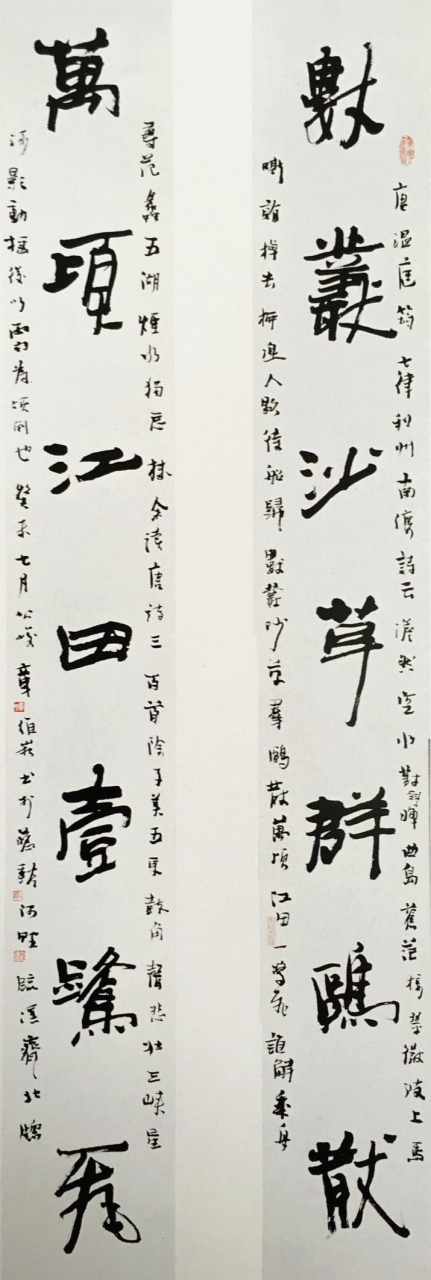 數叢沙草群鷗散
萬頃江田壹鷺飛
唐溫庭筠七律利州南渡詩云澹然空水對斜暉曲島蒼茫接翠微波上馬
嘶看棹去柳邊人歇待船歸數叢沙草羣鷗散萬頃江田一鷺飛誰解乘舟
尋范蠡五湖煙水獨忘機余讀唐詩三百首除子美五更鼓角聲悲壯三峽星
河影動搖後以此為傾倒也癸未七月